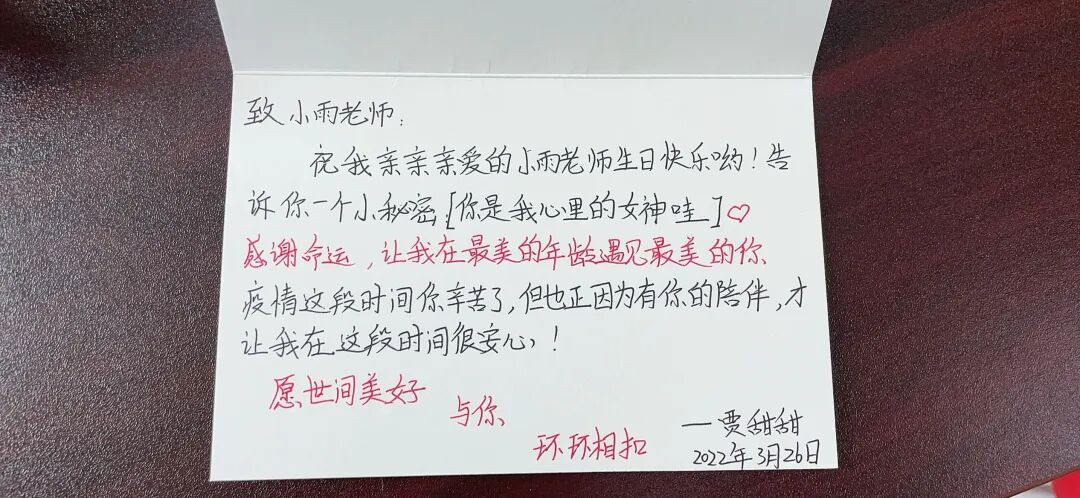 致小雨老师：
祝我亲亲亲爱的小雨老师生日快乐哟！告
诉你一个小秘密：[你是我心里的女神哇]♡
感谢命运，让我在最美的年龄遇见最美的你
疫情这段时间你辛苦了，但也正因为有你的陪伴，才
让我在这段时间很安心！
愿世间美好
与你
环环相扣
—贾甜甜
2022年3月26日